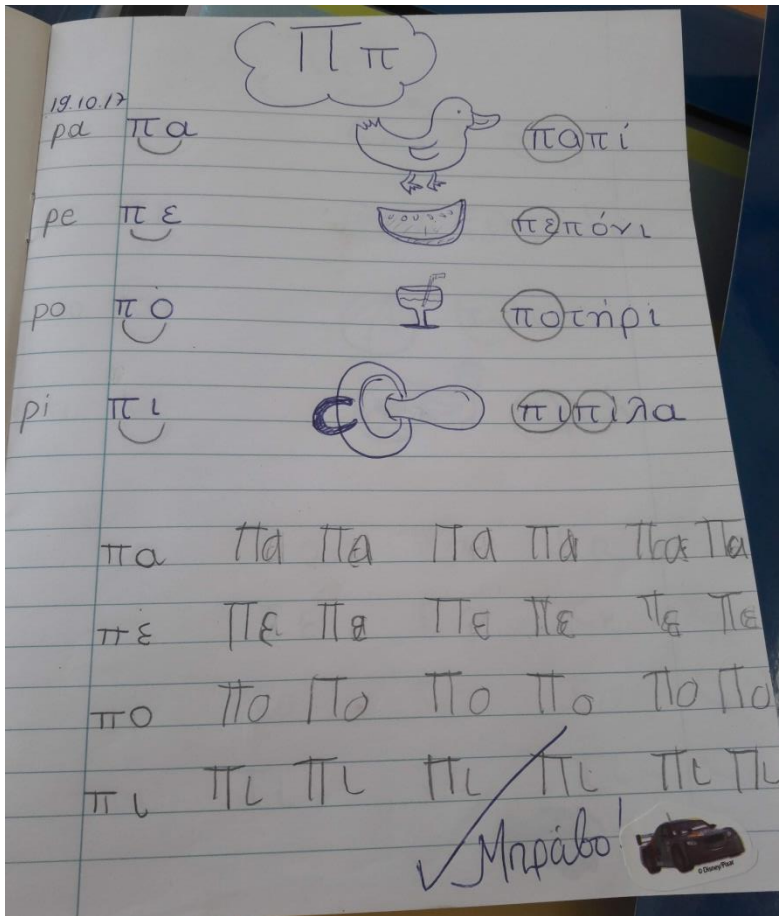 Π π
19.10.17
pa πα παπί
pe πε πεπόνι
po πό ποτήρι
pi πι πιπίλα
πα Πα Πα Πα Πα Πα Πα
πέ Πε Πε Πε Πε Πε Πε
πο Πο Πο Πο Πο Πο Πο
πι Πι Πι Πι Πι Πι Πι
Μπράβο!
©Disney/Pixar